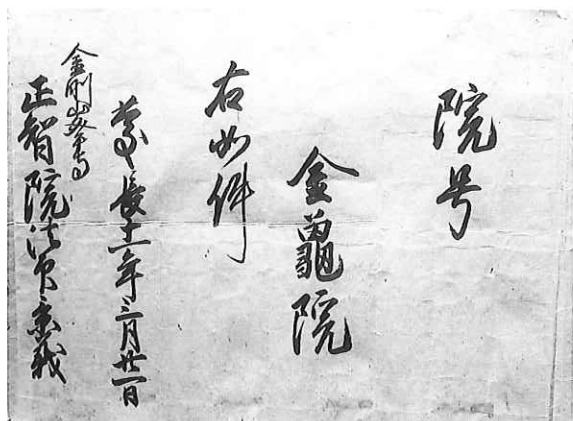 院号
金龜院
右如件
慶長十一年三月廿一日
金剛峯寺
正智院法印